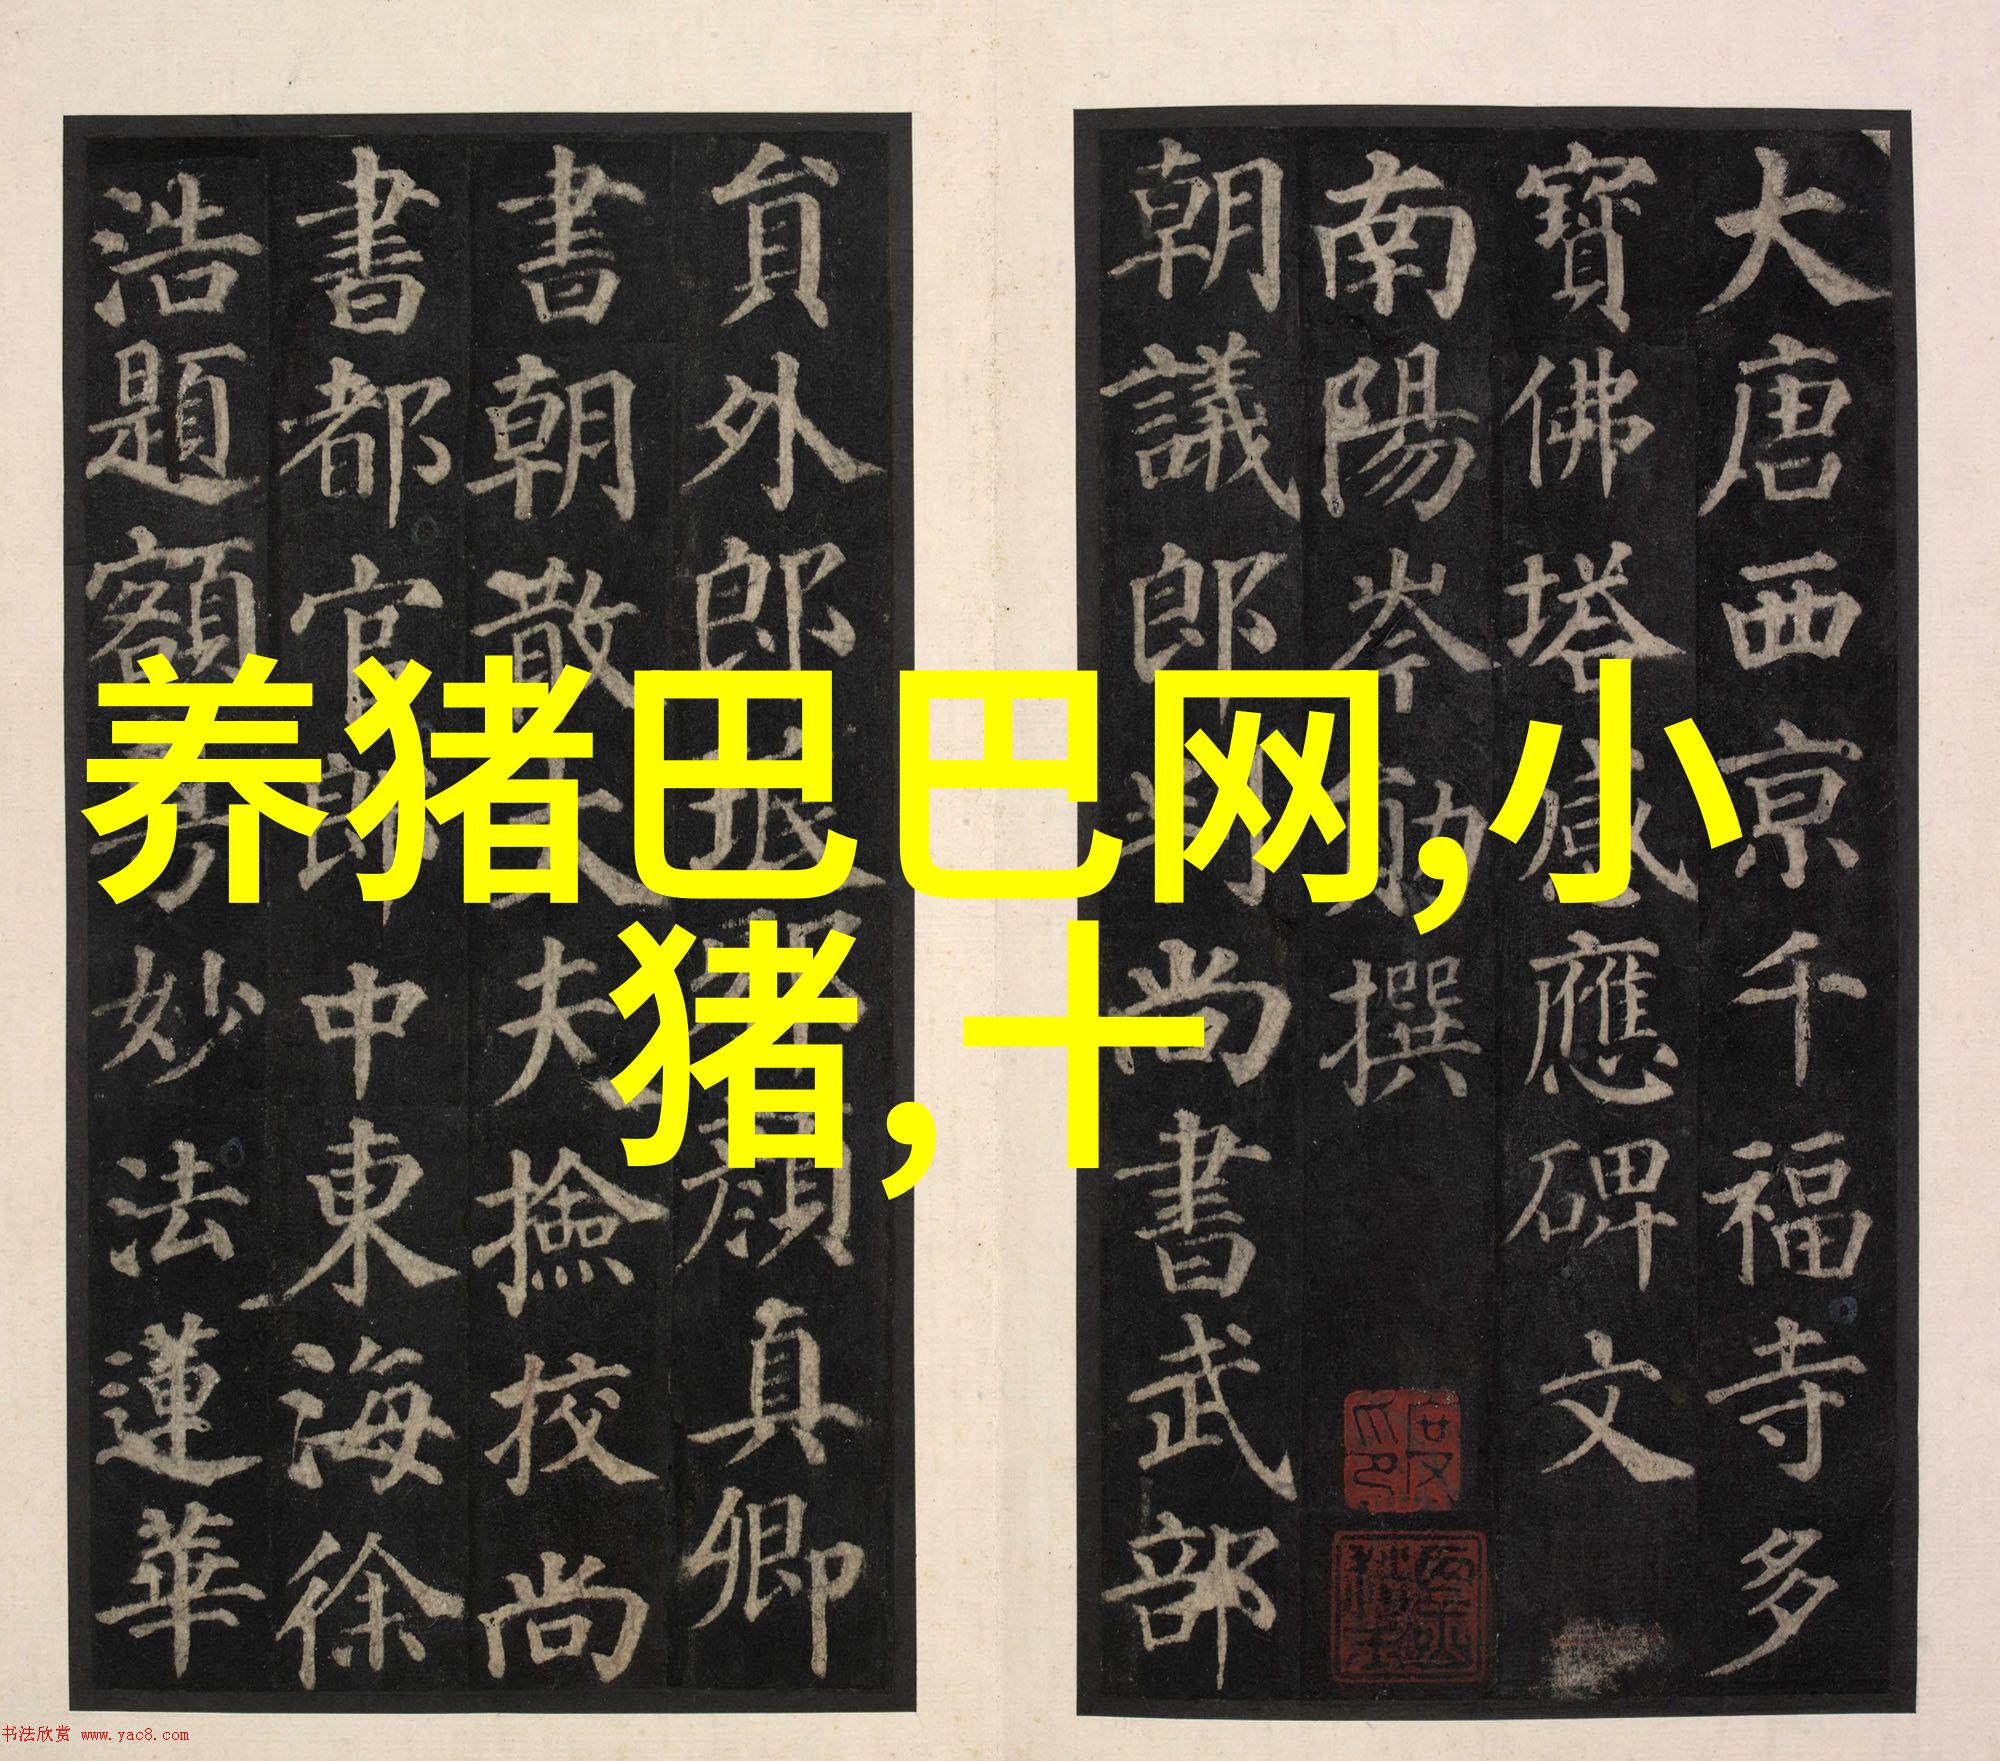 大唐西京千福寺多
寶佛塔感應碑文
南陽岑勛撰
朝議郎判尚書武部
貟外郎琅邪顏真卿
書朝散大夫撿校尚
書都官郎中東海徐
浩題額
妙法蓮華
养猪巴巴网,小
猪,十
书法欣赏 www.yac8.com